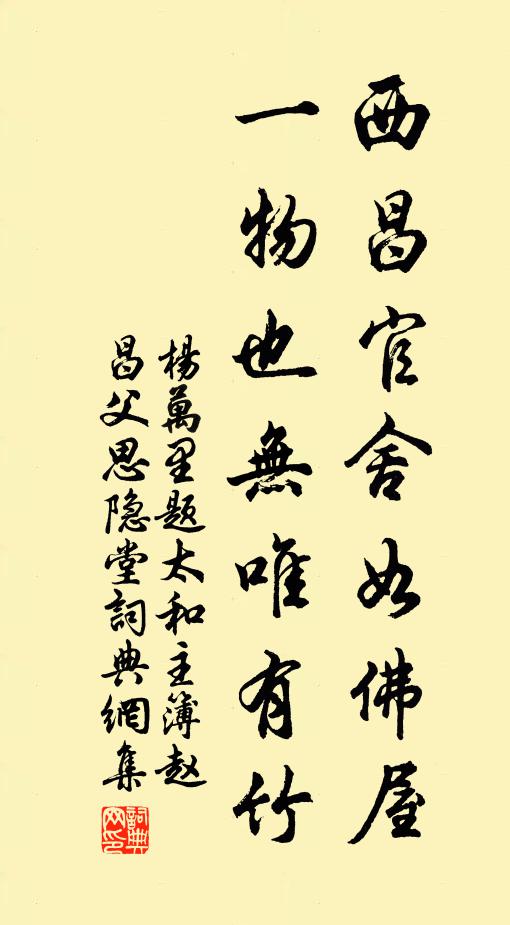 西昌官舍如佛屋
一物也無唯有竹
楊萬里題太和主簿趙
昌父思隐堂詞典網集
詞典網印